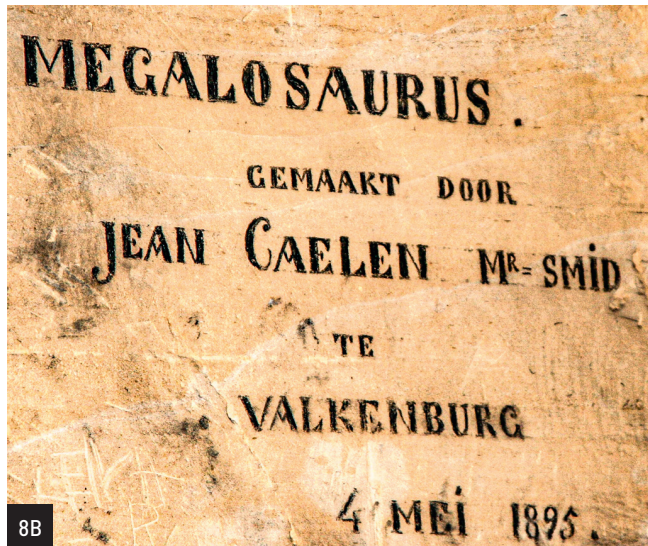 MEGALOSAURUS.
GEMAAKT DOOR
JEAN CAELEN MR= SMiD
TE
VALKENBURG
4 MEi 1895.
8B